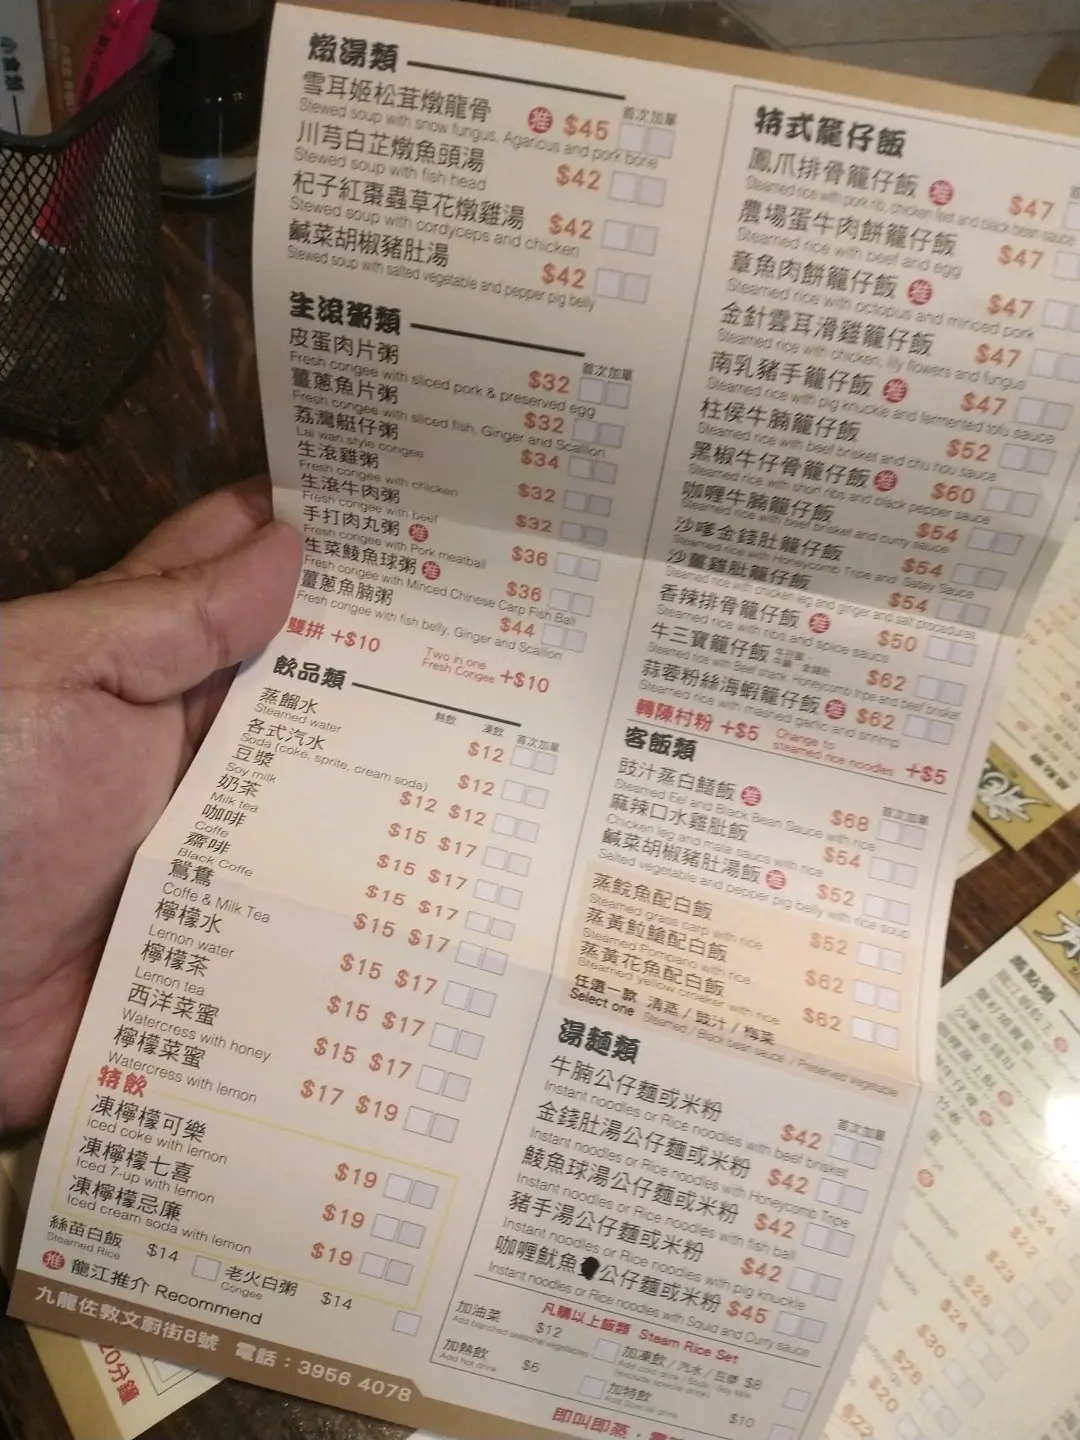 燉湯類
首次加單
雪耳姬松茸燉龍骨 推 $45
Stewed soup with snow fungus, Agaricus and pork bone
川芎白芷燉魚頭湯 $42
Stewed soup with fish head
杞子紅棗蟲草花燉雞湯 $42
Stewed soup with cordyceps and chicken
鹹菜胡椒豬肚湯 $42
Stewed soup with salted vegetable and pepper pig belly
生滾粥類
首次加單
皮蛋肉片粥 $32
Fresh congee with sliced pork & preserved egg
薑蔥魚片粥 $32
Fresh congee with sliced fish, Ginger and Scallion
荔灣艇仔粥 $34
Lai wan style congee
生滾雞粥 $32
Fresh congee with chicken
生滾牛肉粥 $32
Fresh congee with beef
手打肉丸粥 推 $36
Fresh congee with Pork meatball
生菜鯪魚球粥 推 $36
Fresh congee with Minced Chinese Carp Fish Ball
薑蔥魚腩粥 $44
Fresh congee with fish belly, Ginger and Scallion
雙拼 +$10 Two in one Fresh Congee +$10
飲品類
熱飲 凍飲 首次加單
蒸餾水 $12
Steamed water
各式汽水 $12
Soda (coke, sprite, cream soda)
豆漿 $12 $12
Soy milk
奶茶 $15 $17
Milk tea
咖啡 $15 $17
Coffe
齋啡 $15 $17
Black Coffe
鴛鴦 $15 $17
Coffe & Milk Tea
檸檬水 $15 $17
Lemon water
檸檬茶 $15 $17
Lemon tea
西洋菜蜜 $15 $17
Watercress with honey
檸檬菜蜜 $17 $19
Watercress with lemon
特飲
凍檸檬可樂 $19
Iced coke with lemon
凍檸檬七喜 $19
Iced 7-up with lemon
凍檸檬忌廉 $19
Iced cream soda with lemon
絲苗白飯 $14
Steamed Rice
老火白粥 $14
Congee
推 龍江推介 Recommend
九龍佐敦文蔚街8號 電話：3956 4078
特式籠仔飯
鳳爪排骨籠仔飯 推 $47
Steamed rice with pork rib, chicken feet and black bean sauce
農場蛋牛肉餅籠仔飯 $47
Steamed rice with beef and egg
章魚肉餅籠仔飯 推 $47
Steamed rice with octopus and minced pork
金針雲耳滑雞籠仔飯 $47
Steamed rice with chicken, lily flowers and fungus
南乳豬手籠仔飯 推 $47
Steamed rice with pig knuckle and fermented tofu sauce
柱侯牛腩籠仔飯 $52
Steamed rice with beef brisket and chu hou sauce
黑椒牛仔骨籠仔飯 推 $60
Steamed rice with short ribs and black pepper sauce
咖喱牛腩籠仔飯 $54
Steamed rice with beef brisket and curry sauce
沙嗲金錢肚籠仔飯 $54
Steamed rice with Honeycomb Tripe and Satay Sauce
沙薑雞肶籠仔飯 $54
Steamed rice with chicken leg and ginger and salt procedures
香辣排骨籠仔飯 推 $50
Steamed rice with ribs and spice saucs
牛三寶籠仔飯 $62
Steamed rice with Beef shank, Honeycomb tripe and beef brisket
蒜蓉粉絲海蝦籠仔飯 推 $62
Steamed rice with mashed garlic and shrimp
轉陳村粉 +$5 Change to steamed rice noodles +$5
客飯類
首次加單
豉汁蒸白鱔飯 推 $68
Steamed Eel and Black Bean Sauce with rice
麻辣口水雞肶飯 $54
Chicken leg and mala saucs with rice
鹹菜胡椒豬肚湯飯 推 $52
Salted vegetable and pepper pig belly with rice soup
蒸鯇魚配白飯 $52
Steamed grass carp with rice
蒸黃鱲鯧配白飯 $62
Steamed Pompano with rice
蒸黃花魚配白飯 $62
Steamed yellow croaker with rice
任選一款 清蒸 / 豉汁 / 梅菜
Select one Steamed / Black bean sauce / Preserved vegetable
湯麵類
首次加單
牛腩公仔麵或米粉 $42
Instant noodles or Rice noodles with beef brisket
金錢肚湯公仔麵或米粉 $42
Instant noodles or Rice noodles with Honeycomb Tripe
鯪魚球湯公仔麵或米粉 $42
Instant noodles or Rice noodles with fish ball
豬手湯公仔麵或米粉 $42
Instant noodles or Rice noodles with pig knuckle
咖喱魷魚公仔麵或米粉 $45
Instant noodles or Rice noodles with Squid and Curry sauce
凡購以上飯類 Steam Rice Set
加油菜 $12
Add blanched seasonal vegetables
加凍飲 / 汽水 / 豆漿 $8
加熱飲 $6
Add hot drink
加特飲 $10
Add Special drink
即叫即蒸，
20分鐘